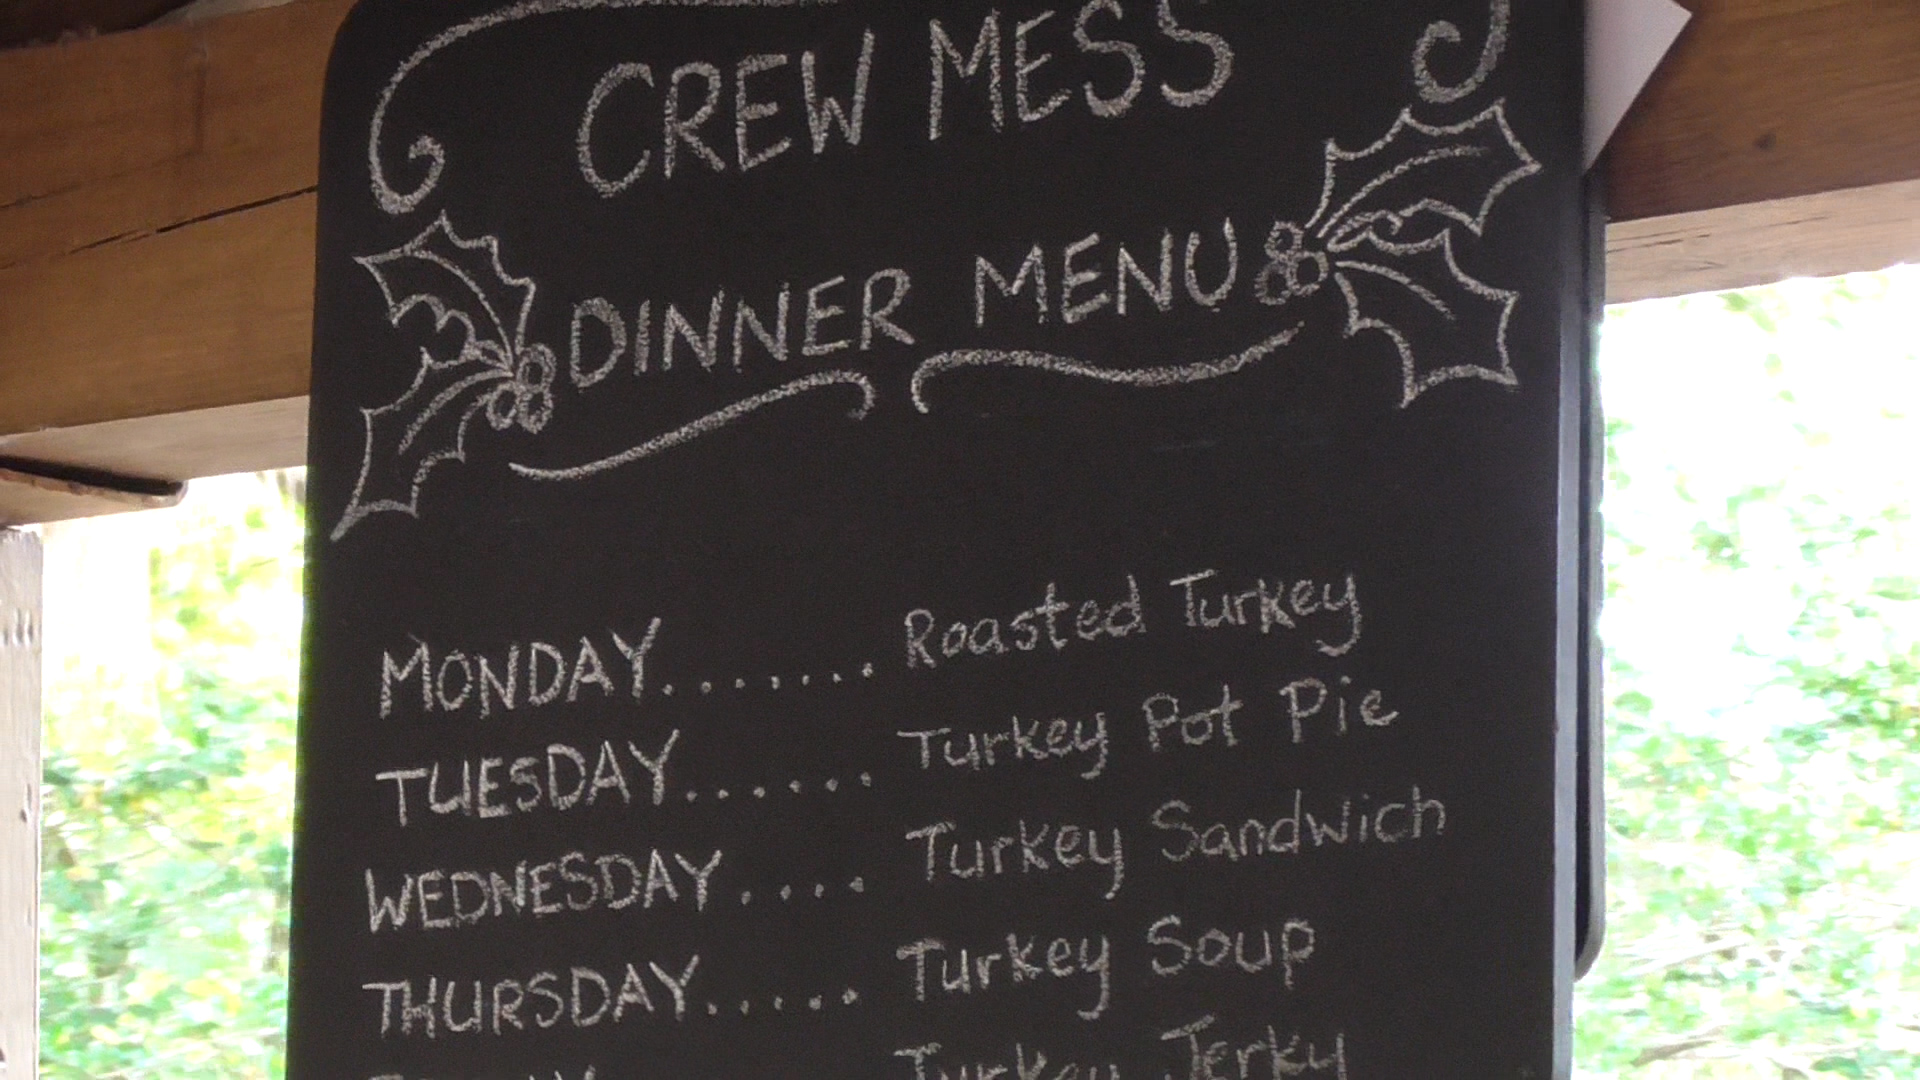 CREW MESS
DINNER MENU
MONDAY....... Roasted Turkey
TUESDAY...... Turkey Pot Pie
WEDNESDAY.... Turkey Sandwich
THURSDAY..... Turkey Soup
Turkey Jerky